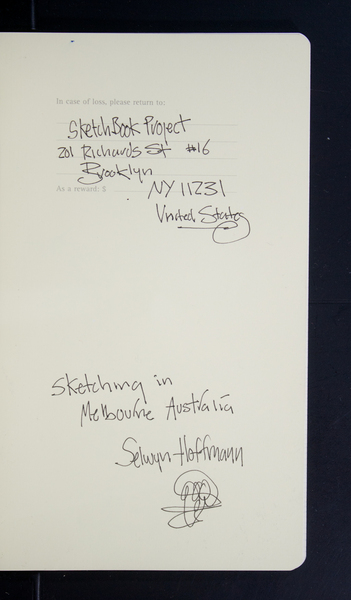 In case of loss, please return to:
SketchBook Project
201 Richards St #16
Brooklyn
As a reward: $
NY 11231
United States
Sketching in
Melbourne Australia
Selwyn Hoffmann